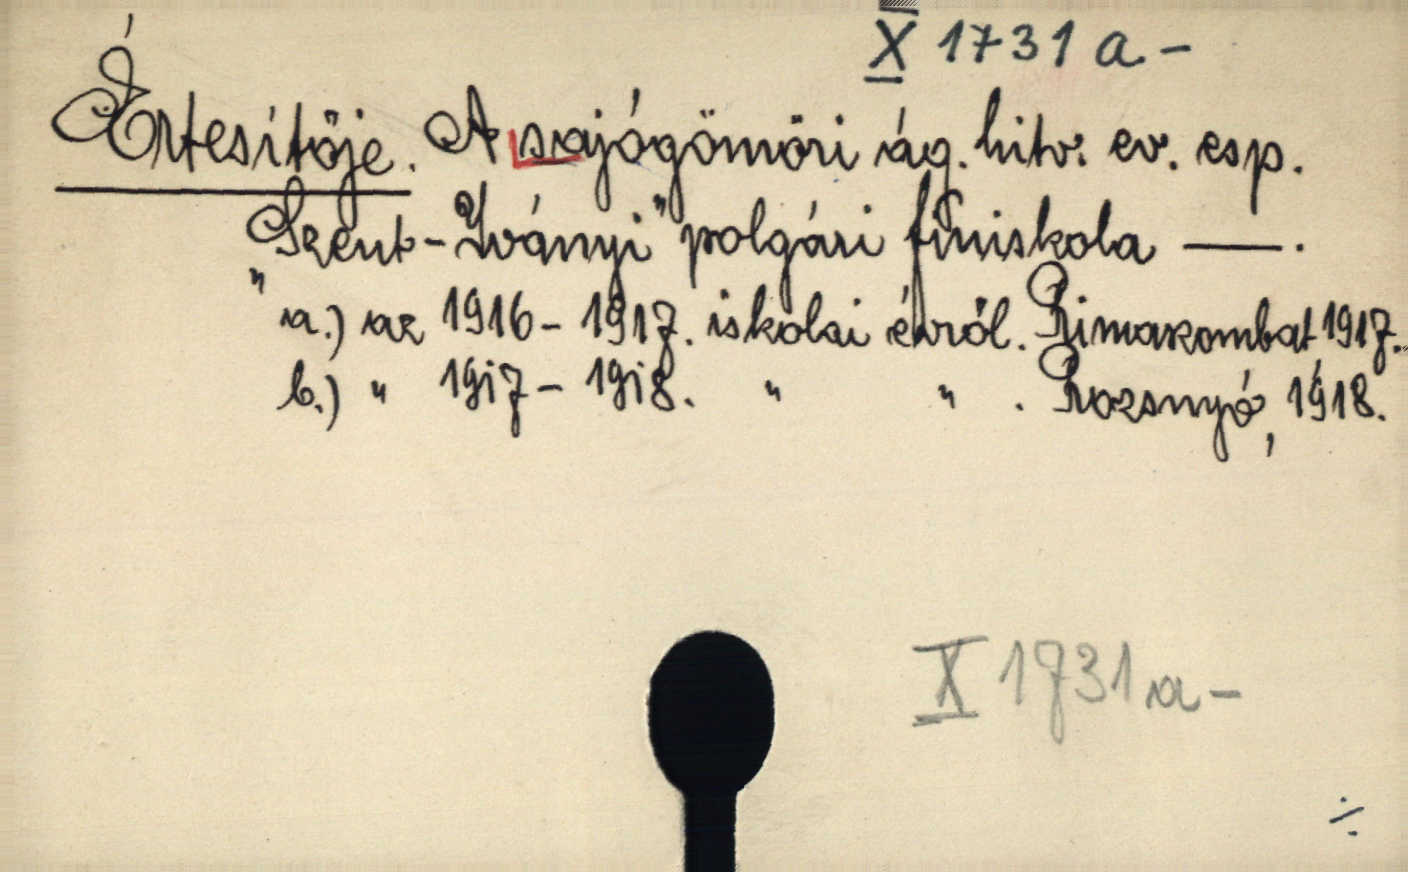 X 1731 a -
Értesítője. A sajógömöri ág. hitv. ev. esp.
"Szent-Iványi" polgári fiúiskola —.
a.) az 1916-1917. iskolai évről. Rimaszombat 1917.
b.) " 1917-1918. " " . Rozsnyó, 1918.
X 1731 a -
÷